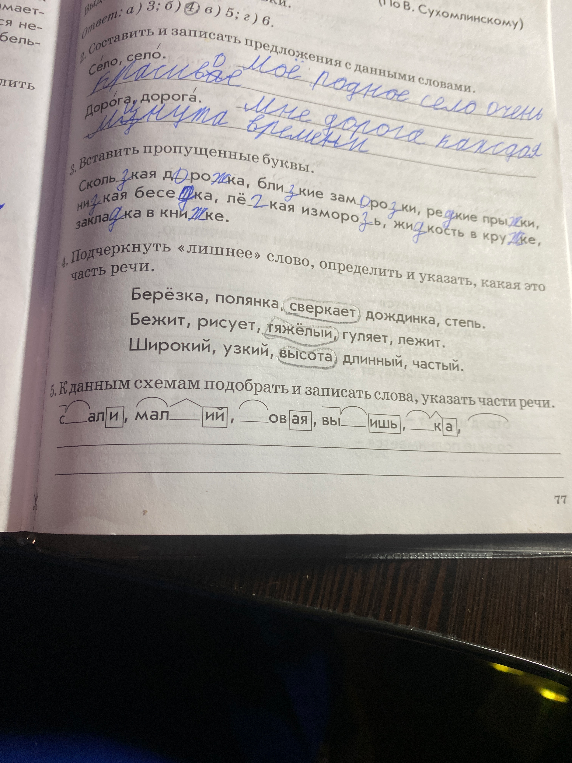 мает-
ся не-
бель-
лить
(По В. Сухомлинскому)
Ответ: а) 3; б) 4; в) 5; г) 6.
2. Составить и записать предложения с данными словами.
Село, село́. Моё родное село очень
красивое
Доро́га, дорога́. Мне дорога каждая
минута времени
3. Вставить пропущенные буквы.
Скользкая дорожка, близкие заморозки, редкие прыжки,
низкая беседка, лёгкая изморозь, жидкость в кружке,
закладка в книжке.
4. Подчеркнуть «лишнее» слово, определить и указать, какая это
часть речи.
Берёзка, полянка, сверкает, дождинка, степь.
Бежит, рисует, тяжёлый, гуляет, лежит.
Широкий, узкий, высота, длинный, частый.
5. К данным схемам подобрать и записать слова, указать части речи.
с__али, мал__ий, __овая, вы__ишь, __ка,
77